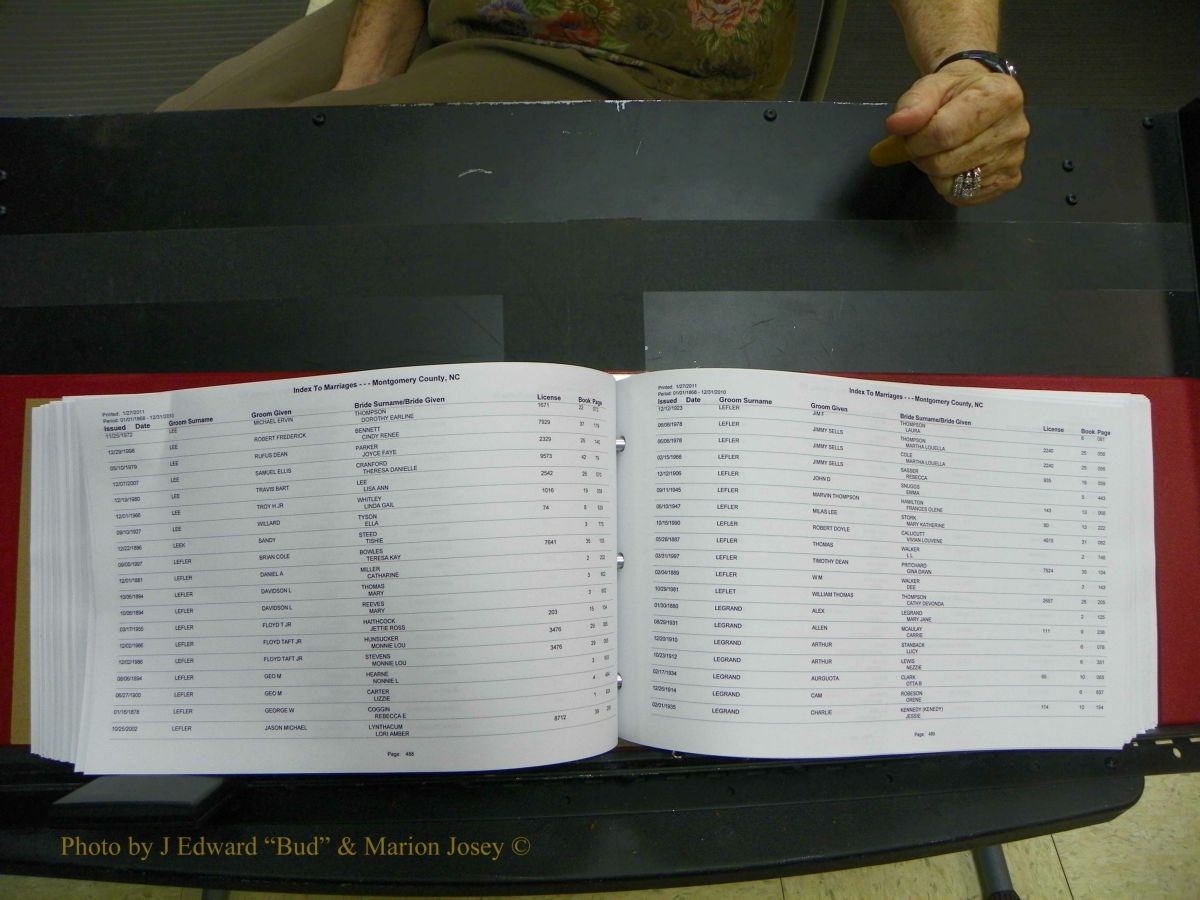 Index To Marriages - - - Montgomery County, NC
Printed: 1/27/2011
Period: 01/01/1868 - 12/31/2010
Issued Date Groom Surname Groom Given Bride Surname/Bride Given License Book Page
11/25/1972 LEE MICHAEL ERVIN THOMPSON 1671 22
DOROTHY EARLINE
12/29/1998 LEE ROBERT FREDERICK BENNETT 7929 37 179
CINDY RENEE
05/10/1979 LEE RUFUS DEAN PARKER 2329 26 140
JOYCE FAYE
12/07/2007 LEE SAMUEL ELLIS CRANFORD 9573 42 79
THERESA DANIELLE
12/19/1980 LEE TRAVIS BART LEE 2542 26
LISA ANN
12/01/1966 LEE TROY H JR WHITLEY 1016 19
LINDA GAIL
09/10/1927 LEE WILLARD TYSON 74 8
ELLA
12/22/1896 LEEK SANDY STEED 3
TISHIE
09/06/1997 LEFLER BRIAN COLE BOWLES 7641 35
TERESA KAY
12/01/1881 LEFLER DANIEL A MILLER 2
CATHARINE
10/06/1894 LEFLER DAVIDSON L THOMAS 3
MARY
10/06/1894 LEFLER DAVIDSON L REEVES 3
MARY
03/17/1955 LEFLER FLOYD T JR HAITHCOCK 203 15 154
JETTIE ROSS
12/02/1986 LEFLER FLOYD TAFT JR HUNSUCKER 3476 29
MONNIE LOU
12/02/1986 LEFLER FLOYD TAFT JR STEVENS 3476 29
MONNIE LOU
06/06/1894 LEFLER GEO M HEARNE 3
NONNIE L
06/27/1900 LEFLER GEO M CARTER 4
LIZZIE
01/16/1878 LEFLER GEORGE W COGGIN 1
REBECCA E
10/25/2002 LEFLER JASON MICHAEL LYNTHACUM 8712 39
LORI AMBER
Page: 488
Index To Marriages - - - Montgomery County, NC
Printed: 1/27/2011
Period: 01/01/1868 - 12/31/2010
Issued Date Groom Surname Groom Given Bride Surname/Bride Given License Book Page
12/12/1923 LEFLER JIM F THOMPSON 6 081
LAURA
06/06/1978 LEFLER JIMMY SELLS THOMPSON 2240 25 056
MARTHA LOUELLA
06/06/1978 LEFLER JIMMY SELLS COLE 2240 25 056
MARTHA LOUELLA
02/15/1966 LEFLER JIMMY SELLS SASSER 935 19 009
REBECCA
12/12/1906 LEFLER JOHN D SNUGGS 5 443
EMMA
09/11/1945 LEFLER MARVIN THOMPSON HAMILTON 143 13 068
FRANCES OLENE
06/10/1947 LEFLER MILAS LEE STORK 80 13 222
MARY KATHERINE
10/15/1990 LEFLER ROBERT DOYLE CALLICUTT 31 082
VIVIAN LOUVENE
05/28/1887 LEFLER THOMAS WALKER 2 746
L L
03/31/1997 LEFLER TIMOTHY DEAN PRITCHARD 7524 35 104
GINA DAWN
02/04/1889 LEFLER W M WALKER 2 143
DEE
10/29/1981 LEFLET WILLIAM THOMAS THOMPSON 2657 26 205
CATHY DEVONDA
01/30/1880 LEGRAND ALEX LEGRAND 2 125
MARY JANE
08/29/1931 LEGRAND ALLEN MCAULAY 111 9 238
CARRIE
12/20/1910 LEGRAND ARTHUR STANBACK 6 078
LUCY
10/23/1912 LEGRAND ARTHUR LEWIS 6 351
NEZZIE
02/17/1934 LEGRAND AURGUOTA CLARK 65 10 065
OTTA B
12/26/1914 LEGRAND CAM ROBESON 6 637
ORENE
02/01/1935 LEGRAND CHARLIE KENNEDY (KENEDY) 174 10 194
JESSIE
Page: 489
Photo by J Edward “Bud” & Marion Josey ©